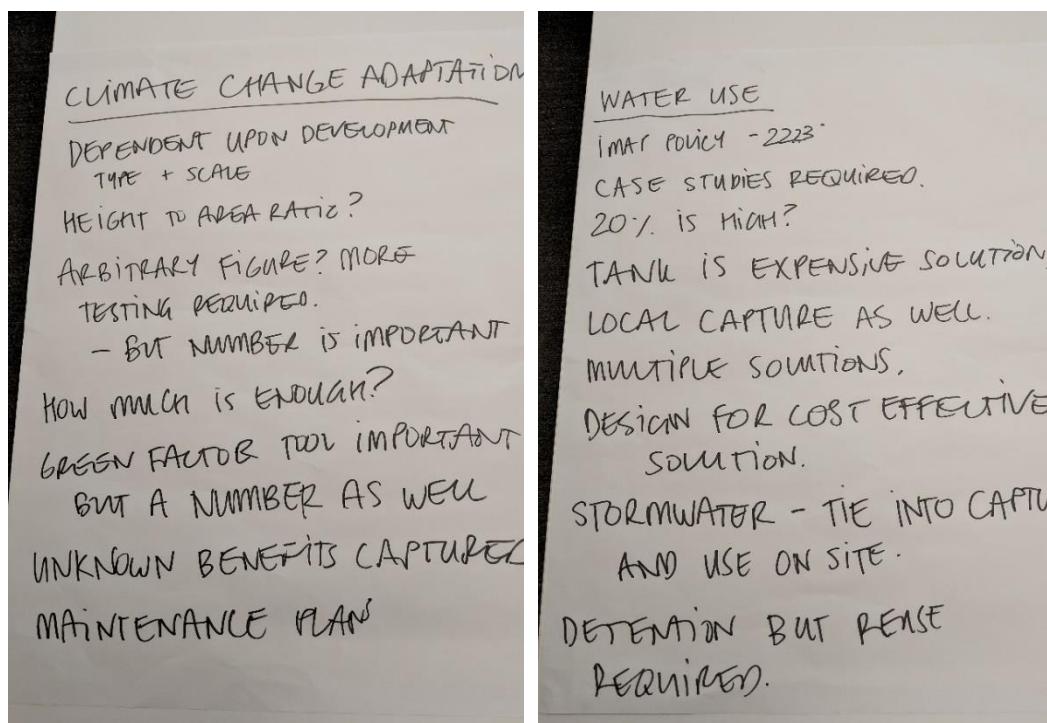 CLIMATE CHANGE ADAPTATION
DEPENDENT UPON DEVELOPMENT
TYPE + SCALE
HEIGHT TO AREA RATIO?
ARBITRARY FIGURE? MORE
TESTING REQUIRED.
- BUT NUMBER IS IMPORTANT
HOW MUCH IS ENOUGH?
GREEN FACTOR TOOL IMPORTANT
BUT A NUMBER AS WELL
UNKNOWN BENEFITS CAPTURED
MAINTENANCE PLANS
WATER USE
POLICY - 2223
CASE STUDIES REQUIRED.
20% IS HIGH?
TANK IS EXPENSIVE SOLUTION
LOCAL CAPTURE AS WELL.
MULTIPLE SOLUTIONS.
DESIGN FOR COST EFFECTIVE
SOLUTION.
STORMWATER - TIE INTO CAPTU
AND USE ON SITE.
DETENTION BUT REUSE
REQUIRED.